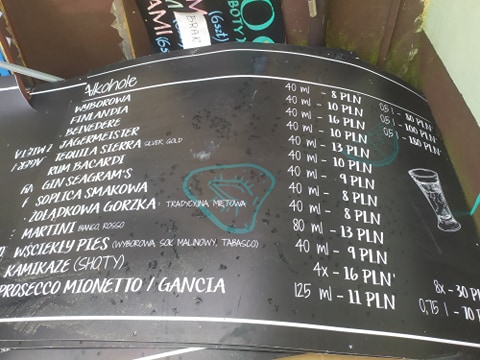 BRAK
(6szt)
BOTY)
AMI (6s
Alkohole
WYBOROWA 40 ml - 8 PLN 0,5 l - 80 PLN
FINLANDIA 40 ml - 10 PLN 0,5 l - 100 PLN
BELVEDERE 40 ml - 16 PLN
JÄGERMEISTER 40 ml - 10 PLN
TEQUILA SIERRA SILVER, GOLD 40 ml - 13 PLN
RUM BACARDI 40 ml - 10 PLN
GIN SEAGRAM'S 40 ml - 9 PLN
SOPLICA SMAKOWA 40 ml - 8 PLN
ŻOŁĄDKOWA GORZKA TRADYCYJNA, MIĘTOWA 40 ml - 8 PLN
MARTINI BIANCO, ROSSO 80 ml - 13 PLN
WŚCIEKŁY PIES (WYBOROWA, SOK MALINOWY, TABASCO) 40 ml - 9 PLN
KAMIKAZE (SHOTY) 4x - 16 PLN 8x - 30 P
PROSECCO MIONETTO / GANCIA 125 ml - 11 PLN 0,75 l - 70